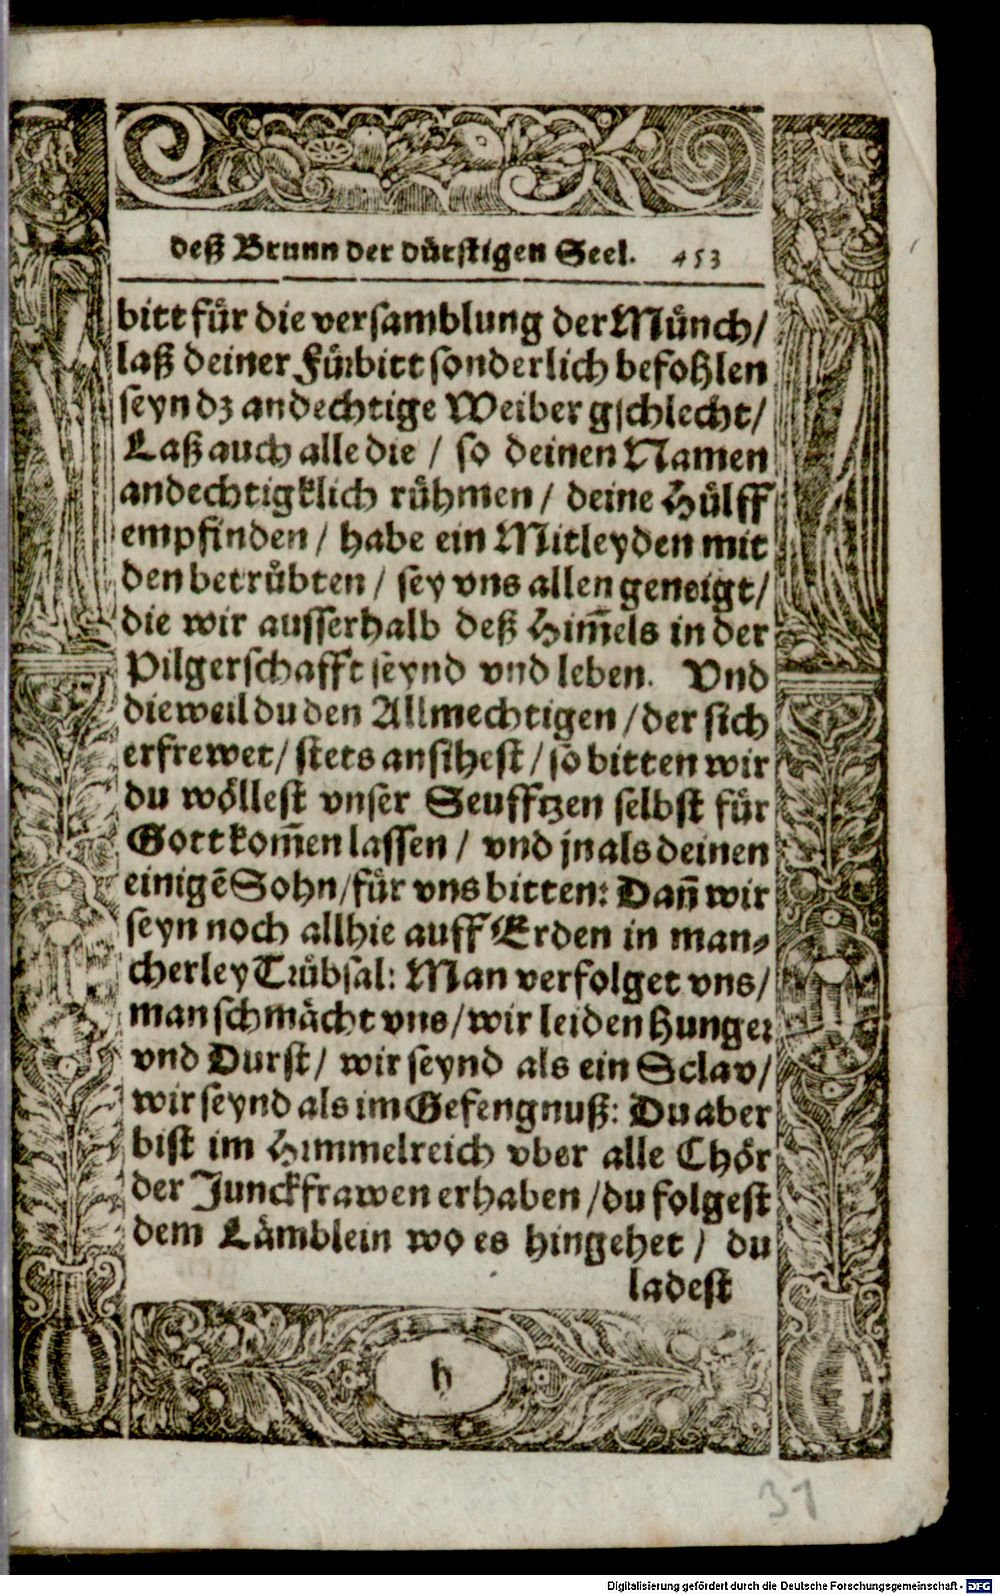 deß Brunn der dürstigen Seel. 453
bitt für die versamblung der Münch/
laß deiner Fürbitt sonderlich befohlen
seyn dz andechtige Weiber gschlecht/
Laß auch alle die / so deinen Namen
andechtigklich rühmen / deine Hülff
empfinden / habe ein Mitleyden mit
den betrübten / sey vns allen geneigt/
die wir ausserhalb deß Him̄els in der
Pilgerschafft seynd vnd leben. Vnd
dieweil du den Allmechtigen / der sich
erfrewet / stets ansihest / so bitten wir
du wöllest vnser Seufftzen selbst für
Gott kom̄en lassen / vnd jn als deinen
einigē Sohn / für vns bitten: Dañ wir
seyn noch allhie auff Erden in man-
cherley Trübsal: Man verfolget vns /
man schmächt vns / wir leiden Hunger
vnd Durst / wir seynd als ein Sclav /
wir seynd als im Gefengnuß: Du aber
bist im Himmelreich vber alle Chör
der Junckfrawen erhaben / du folgest
dem Lämblein wo es hingehet / du
ladest
h
31
Digitalisierung gefördert durch die Deutsche Forschungsgemeinschaft - DFG